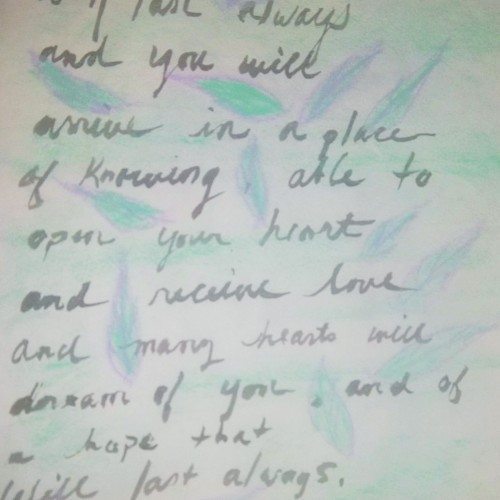 last always
and you will
arrive in a place
of Knowing, able to
open your heart
and receive love
and many hearts will
dream of you, and of
a hope that
will last always.